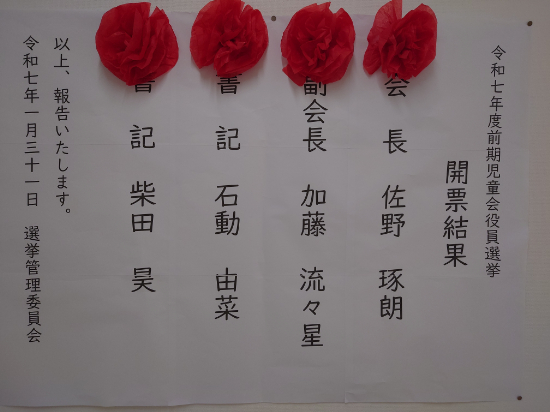 令和七年度前期児童会役員選挙
開票結果
会長 佐野 琢朗
副会長 加藤 流々星
書記 石動 由菜
書記 柴田 昊
以上、報告いたします。
令和七年一月三十一日 選挙管理委員会